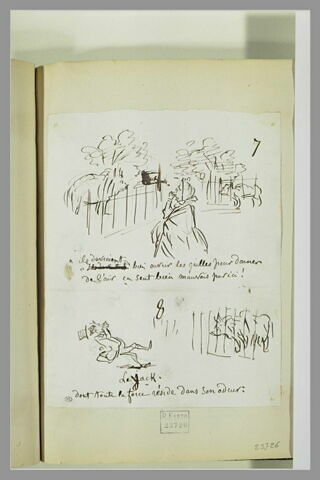 7
ils devraient
bien ouvrir les grilles pour donner
de l'air ça sent bien mauvais par ici!
8
Le Jack.
dont toute la force réside dans son odeur.
R.F. 
23726
23726